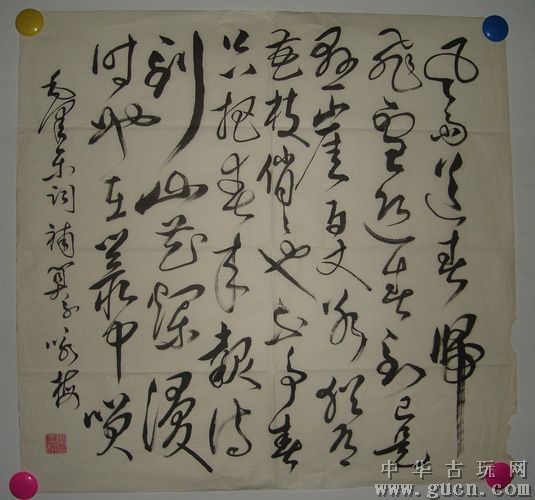 风雨送春归
飛雪迎春到已是
悬崖百丈冰犹有
花枝俏俏也不争春
只把春来報待
到山花烂漫
时她在叢中咲
毛泽东词補算子咏梅
中华古玩网
www.gucn.com